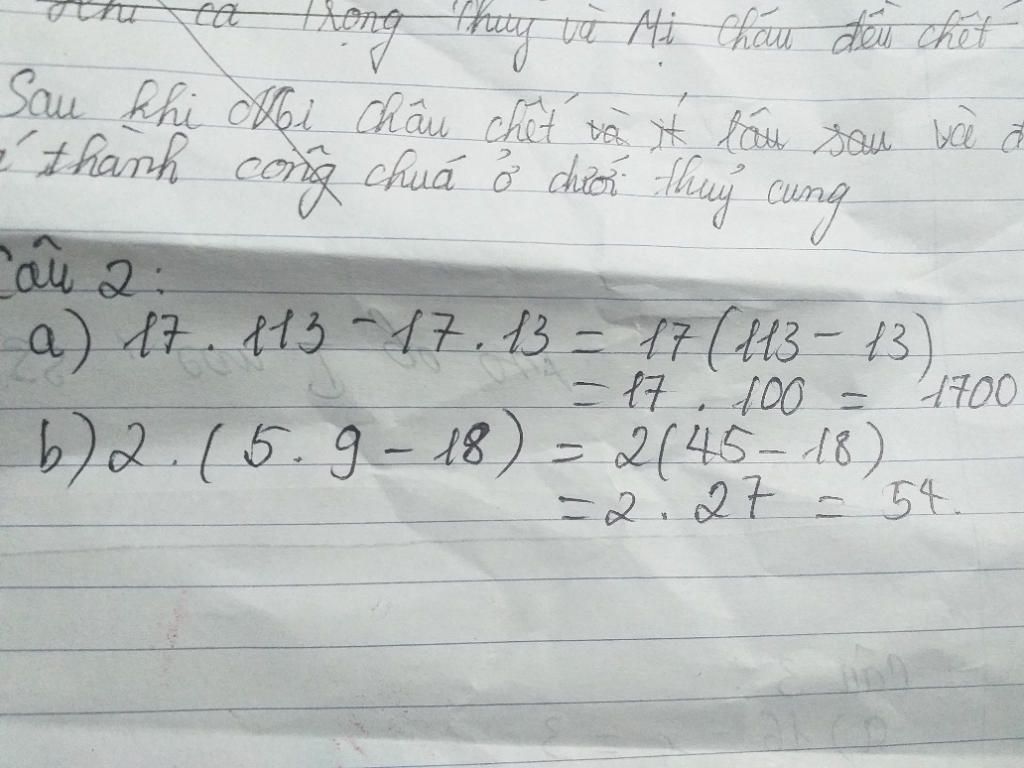 Khi cả Trọng Thuỷ và Mị Châu đều chết
Sau khi Mị Châu chết và ít lâu sau và
thành công chuá ở dưới thuỷ cung
Câu 2:
a) 17 . 113 - 17 . 13 = 17 (113 - 13)
= 17 . 100 = 1700
b) 2 . ( 5 . 9 - 18 ) = 2 (45 - 18)
= 2 . 27 = 54.